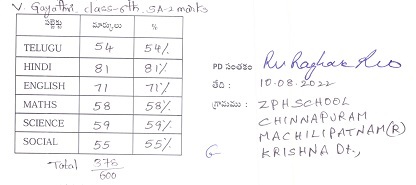 V. Gayathri, class-6th, SA-2 marks
సబ్జెక్టు మార్కులు %
TELUGU 54 54%
HINDI 81 81%
ENGLISH 71 71%
MATHS 58 58%
SCIENCE 59 59%
SOCIAL 55 55%
Total 378
600
PD సంతకం
తేది : 10.08.2022
గ్రామము : ZPHSCHOOL
CHINNAPURAM
MACHILIPATNAM(R)
KRISHNA Dt.,